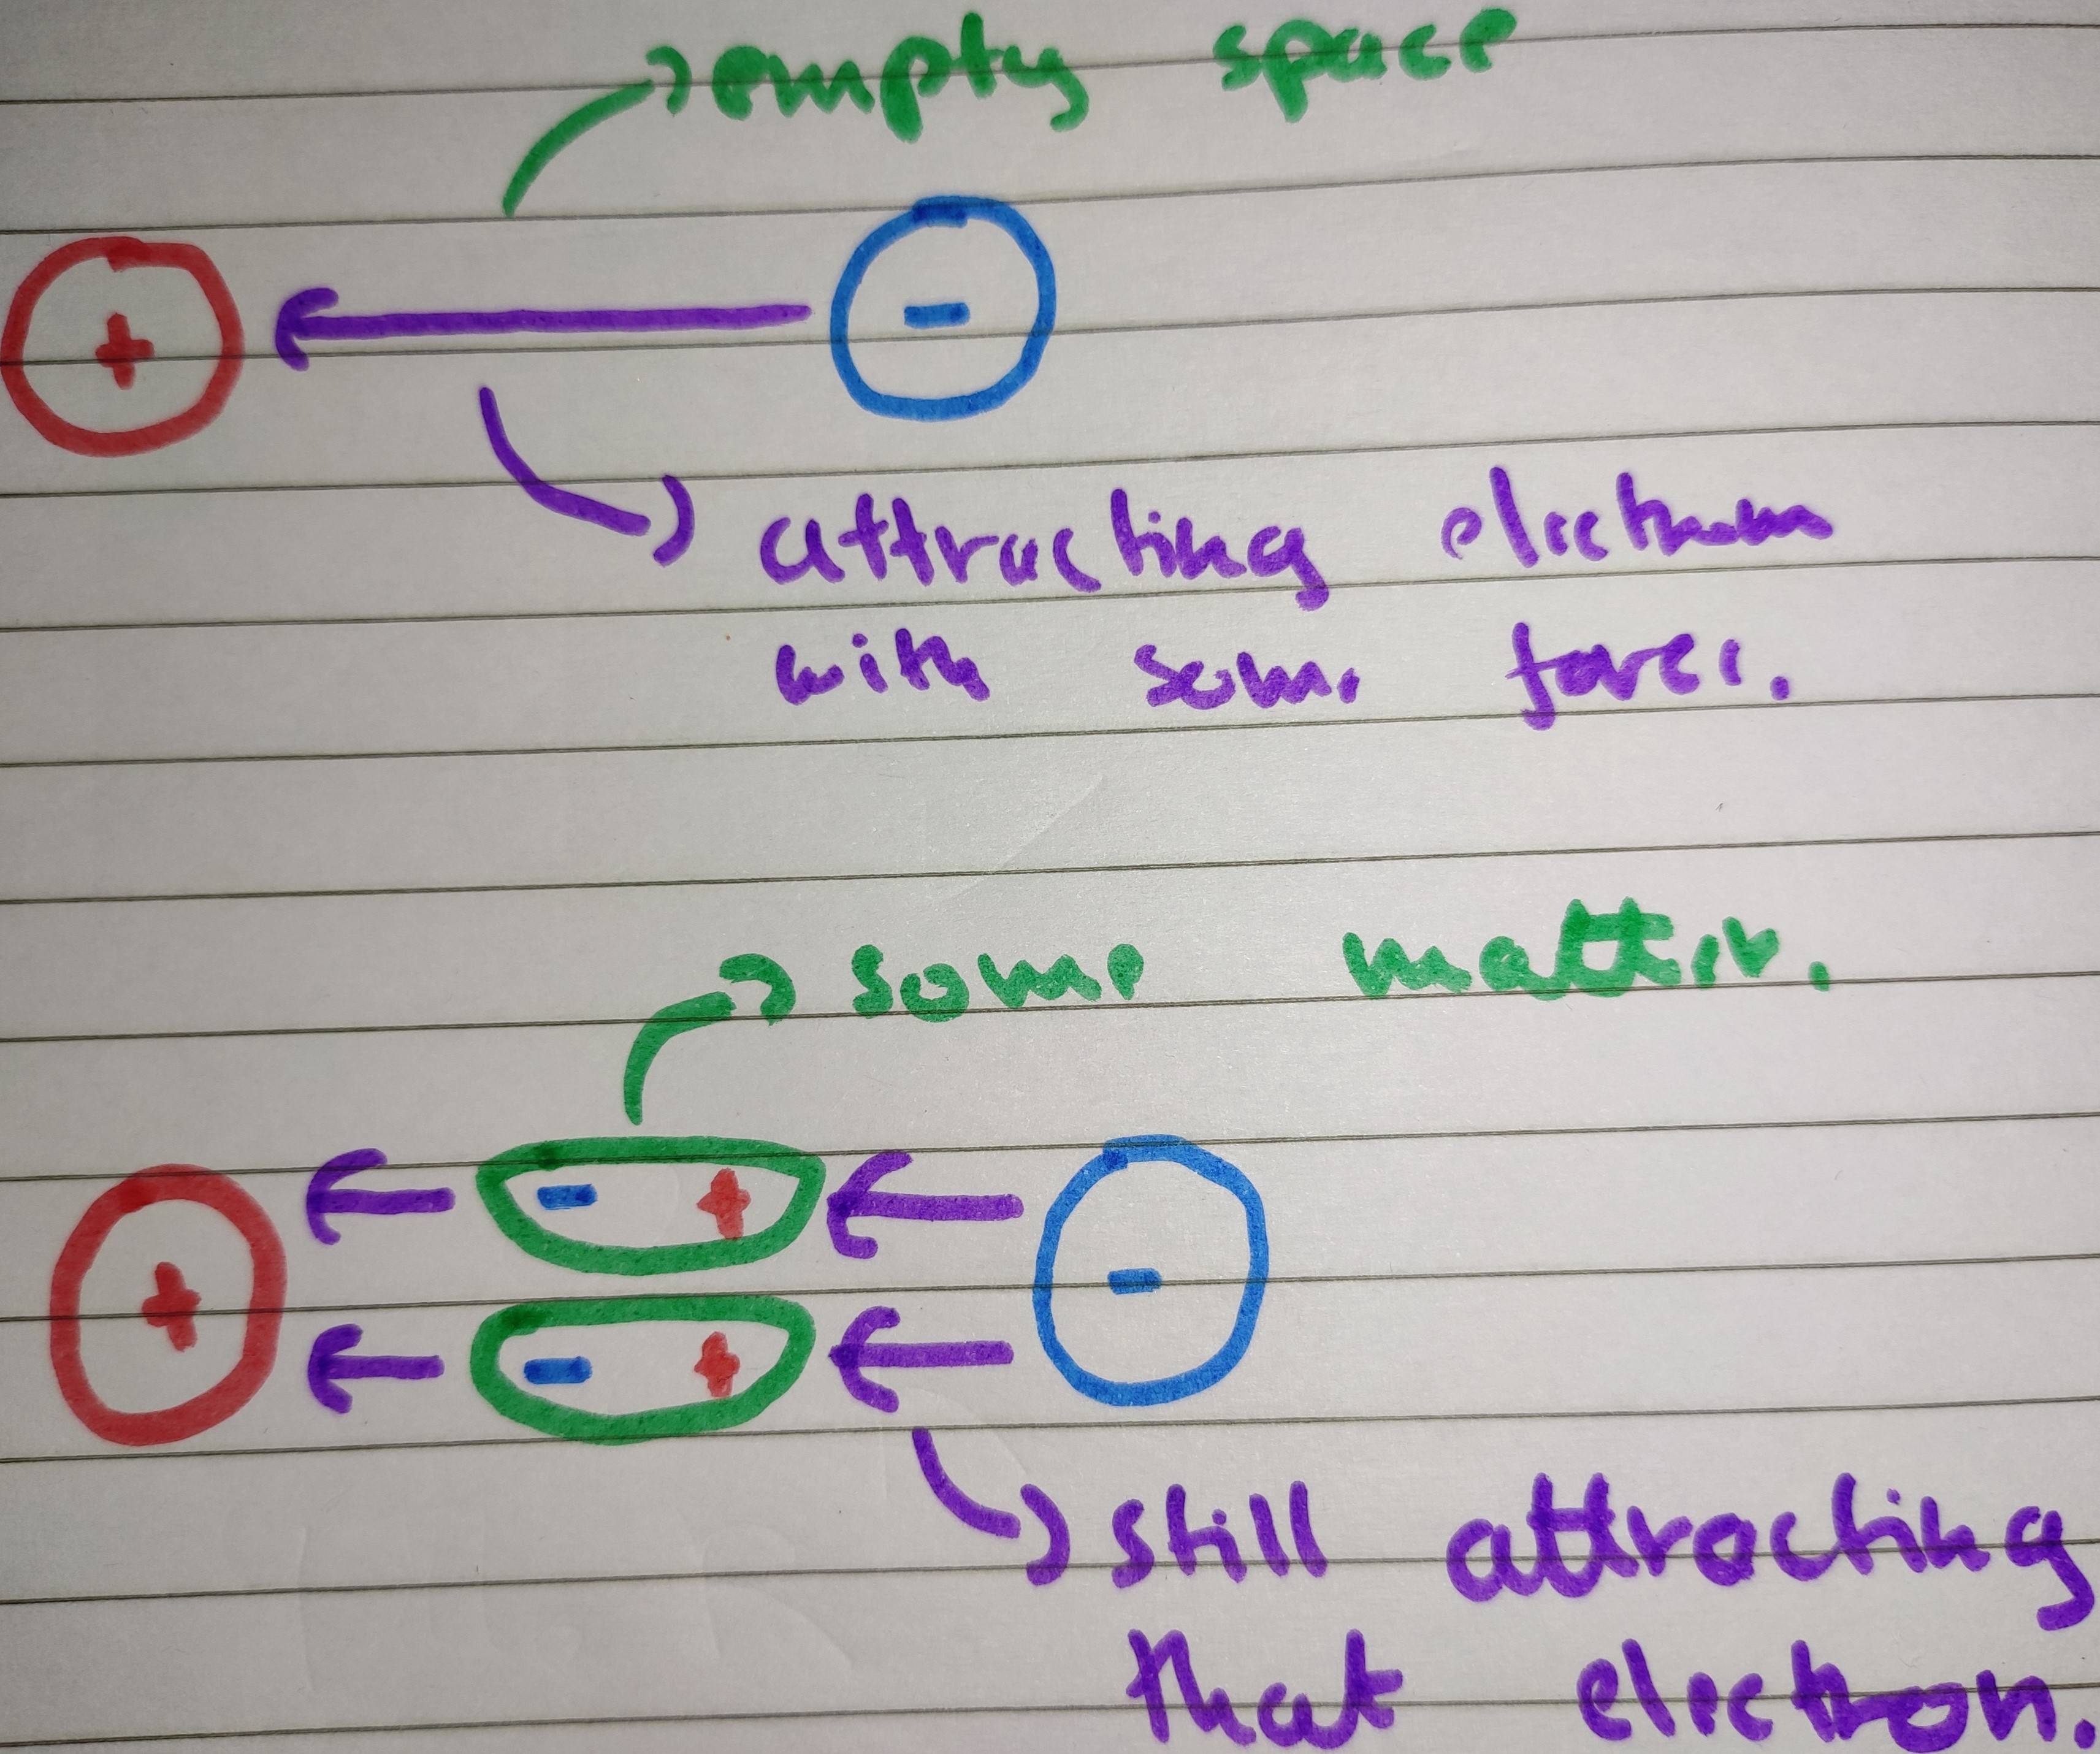 empty space
+
-
attracting electron
with some force.
some matter.
- +
+
-
- +
still attracting
that electron.